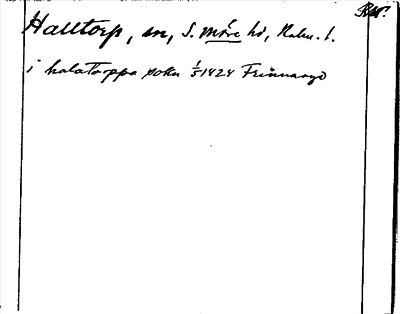 Halltorp, sn, S. Möre hd, Kalm. l.
i halatorppa sokn 1/5 1424 Frinnaryd